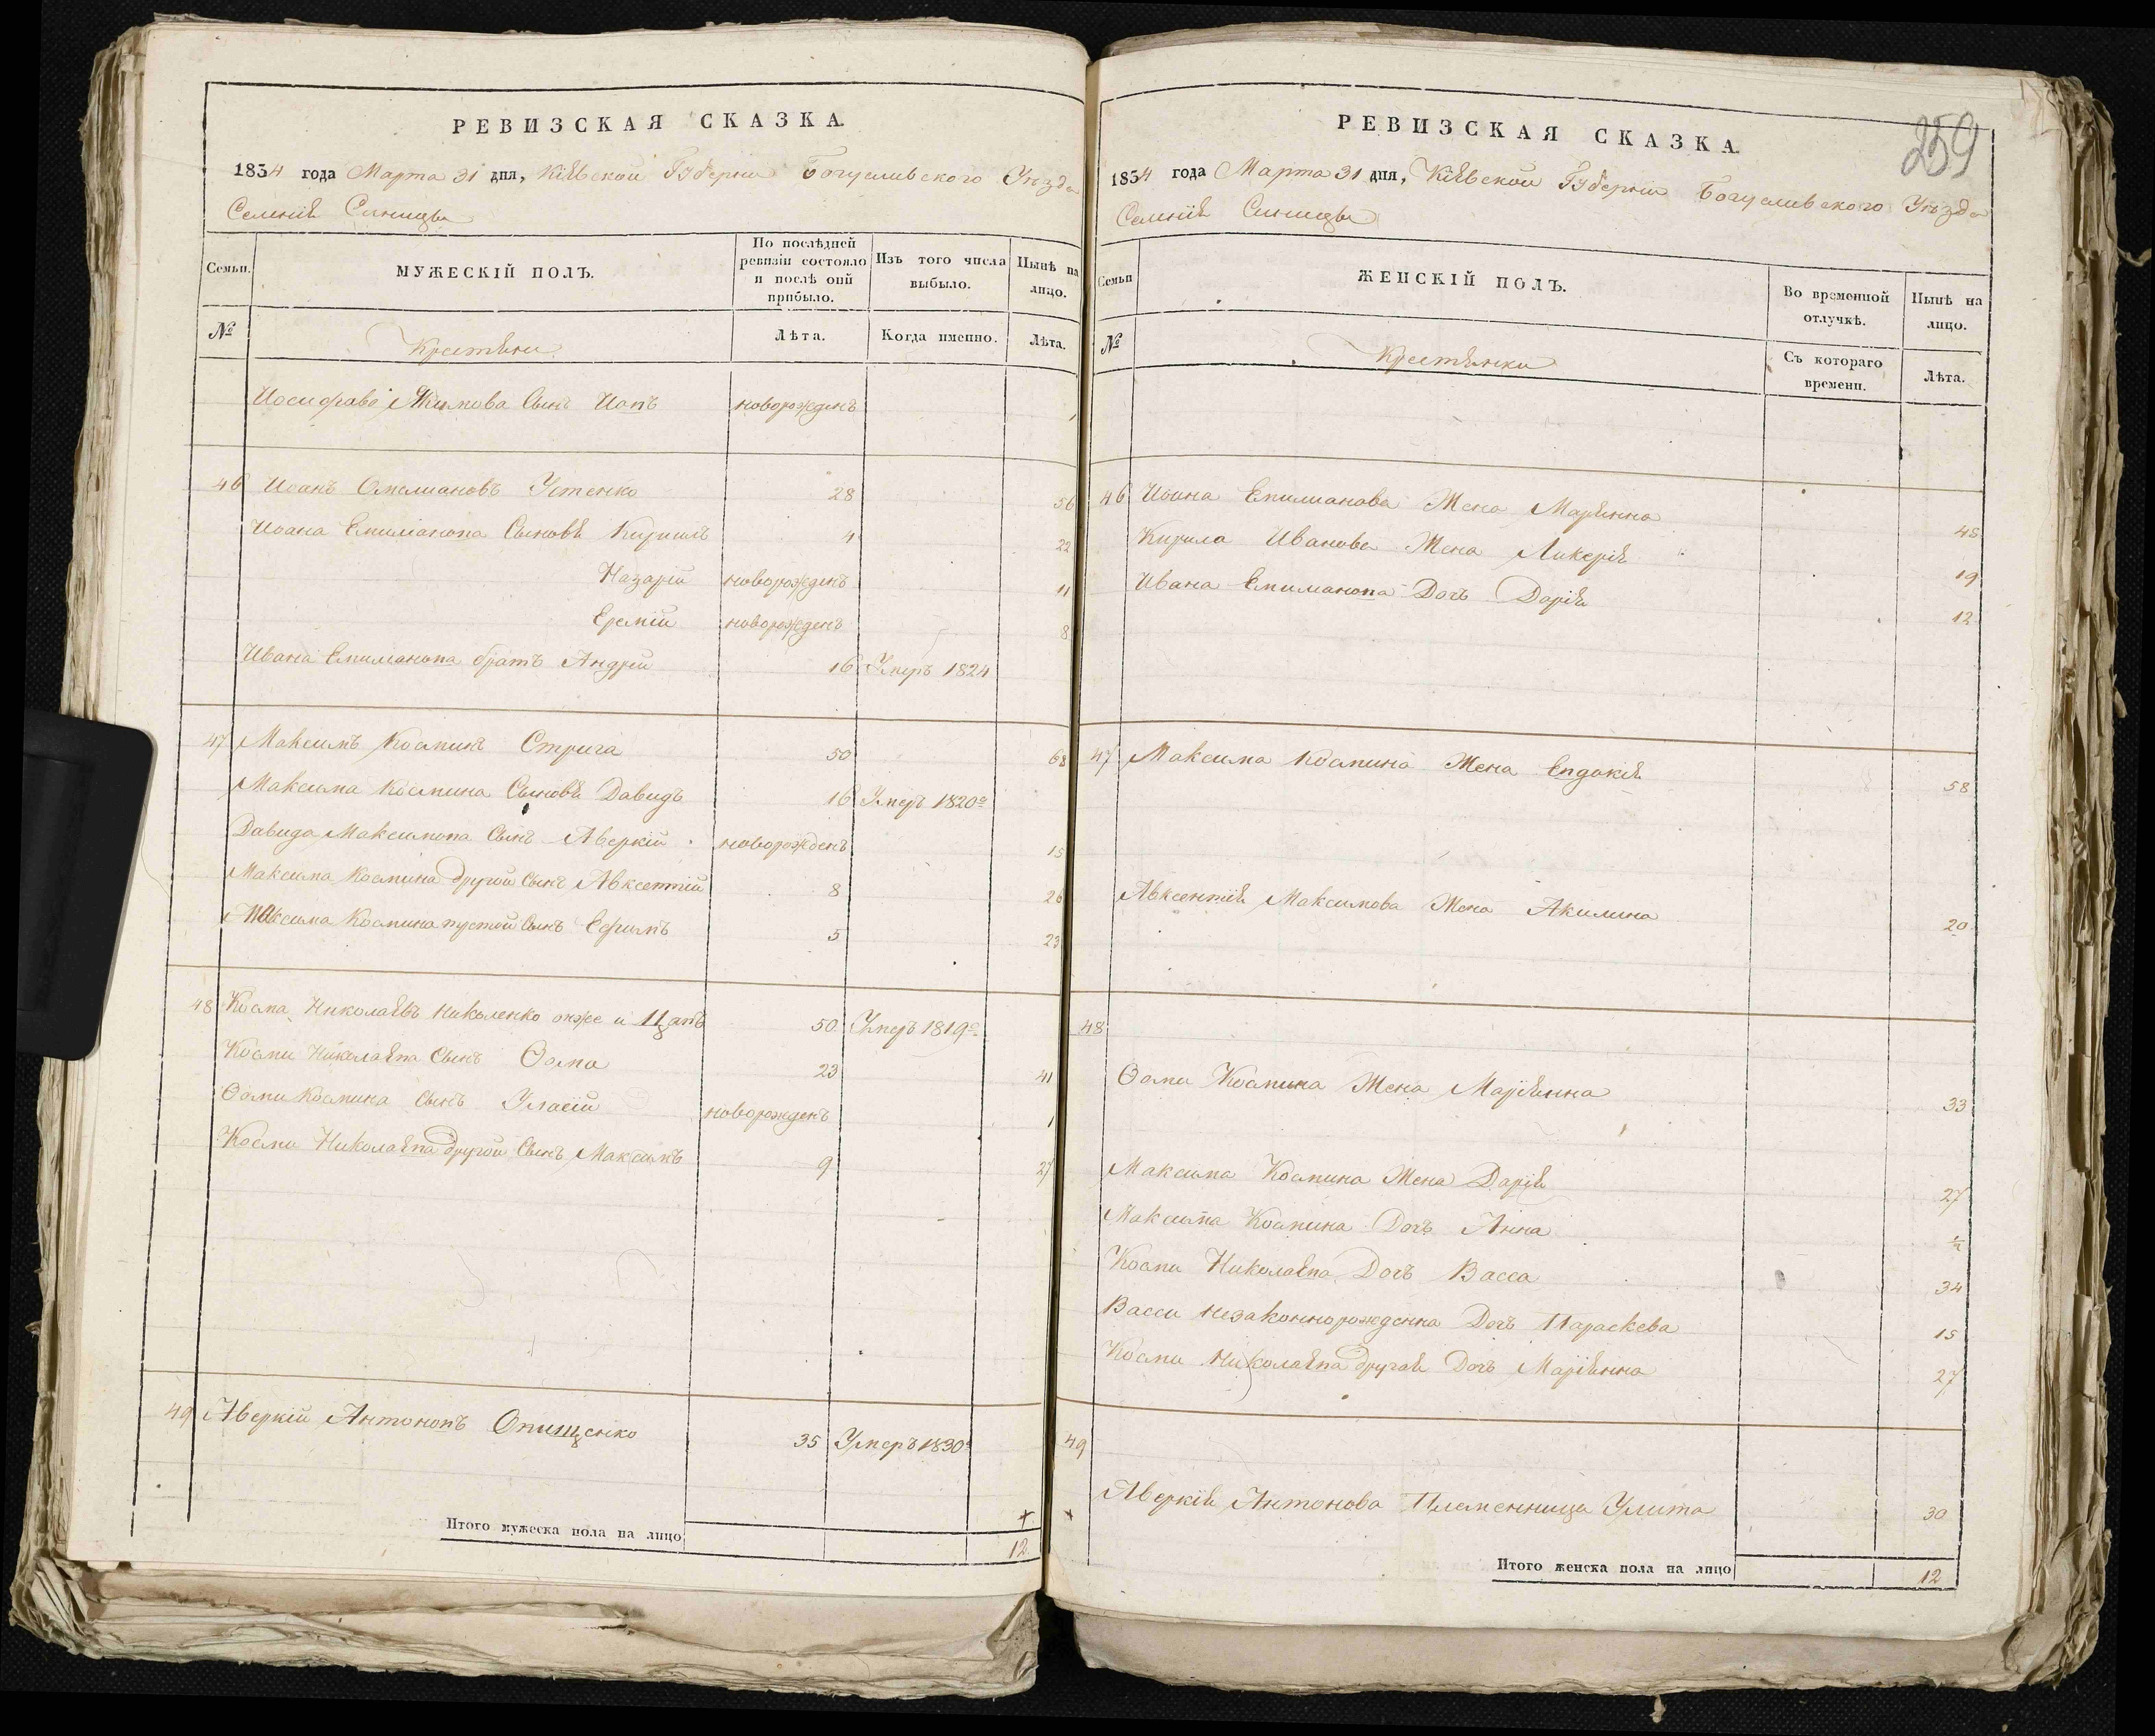 РЕВИЗСКАЯ СКАЗКА.
1834 года Марта 31 дня, Кіевской Губерніи Богуславского Уѣзда
Селенія Синицы
Семьи.
МУЖЕСКІЙ ПОЛЪ.
По послѣдней ревизіи состояло и послѣ оной прибыло.
Изъ того числа выбыло.
Нынѣ на лицо.
№
Крестьяне
Лѣта.
Когда именно.
Лѣта.
Сынъ новорожденъ 1
46 Иоанъ Омелиановъ Устенко 28 56
Иоана Емилианова Сыновя Кирилъ 4 22
Назарій новорожденъ 11
Еремій новорожденъ 8
Ивана Емилианова братъ Андрей 16 Умеръ 1824
47 Максимъ Косминъ Стрига 50 68
Максима Космина Сыновя Давидъ 16 Умеръ 1820го
Давида Максимова Сынъ Аверкій новорожденъ 15
Максима Космина другой Сынъ Авксентій 8 26
Максима Космина Сынъ Ефимъ 5 23
48 Косма Николаевъ Николенко онже и Цапъ 50 Умеръ 1819го
Косми Николаева Сынъ Фома 23 41
Фоми Космина Сынъ Уласій новорожденъ 1
Косми Николаева другой Сынъ Максимъ 9 27
49 Аверкій Антоновъ Онищенко 35 Умеръ 1830го
Итого мужеска пола на лицо 12
259
РЕВИЗСКАЯ СКАЗКА.
1834 года Марта 31 дня, Кіевской Губерніи Богуславского Уѣзда
Селенія Синицы
Семьи
ЖЕНСКІЙ ПОЛЪ.
Во временной отлучкѣ.
Нынѣ на лицо.
№
Крестьянки
Съ котораго времени.
Лѣта.
46 Иоана Емилианова Жена Маріянна 45
Кирила Иванова Жена Ликерія 19
Ивана Емилианова Дочъ Дарія 12
47 Максима Космина Жена Евдокія 58
Авксентія Максимова Жена Акилина 20
48
Фоми Космина Жена Маріянна 33
Максима Космина Жена Дарія 27
Максима Космина Дочъ Анна ½
Косми Николаева Дочъ Васса 34
Васси незаконнорожденна Дочъ Параскева 15
Косми Николаева другая Дочъ Маріянна 27
49
Аверкія Антонова Племенница Улита 30
Итого женска пола на лицо 12